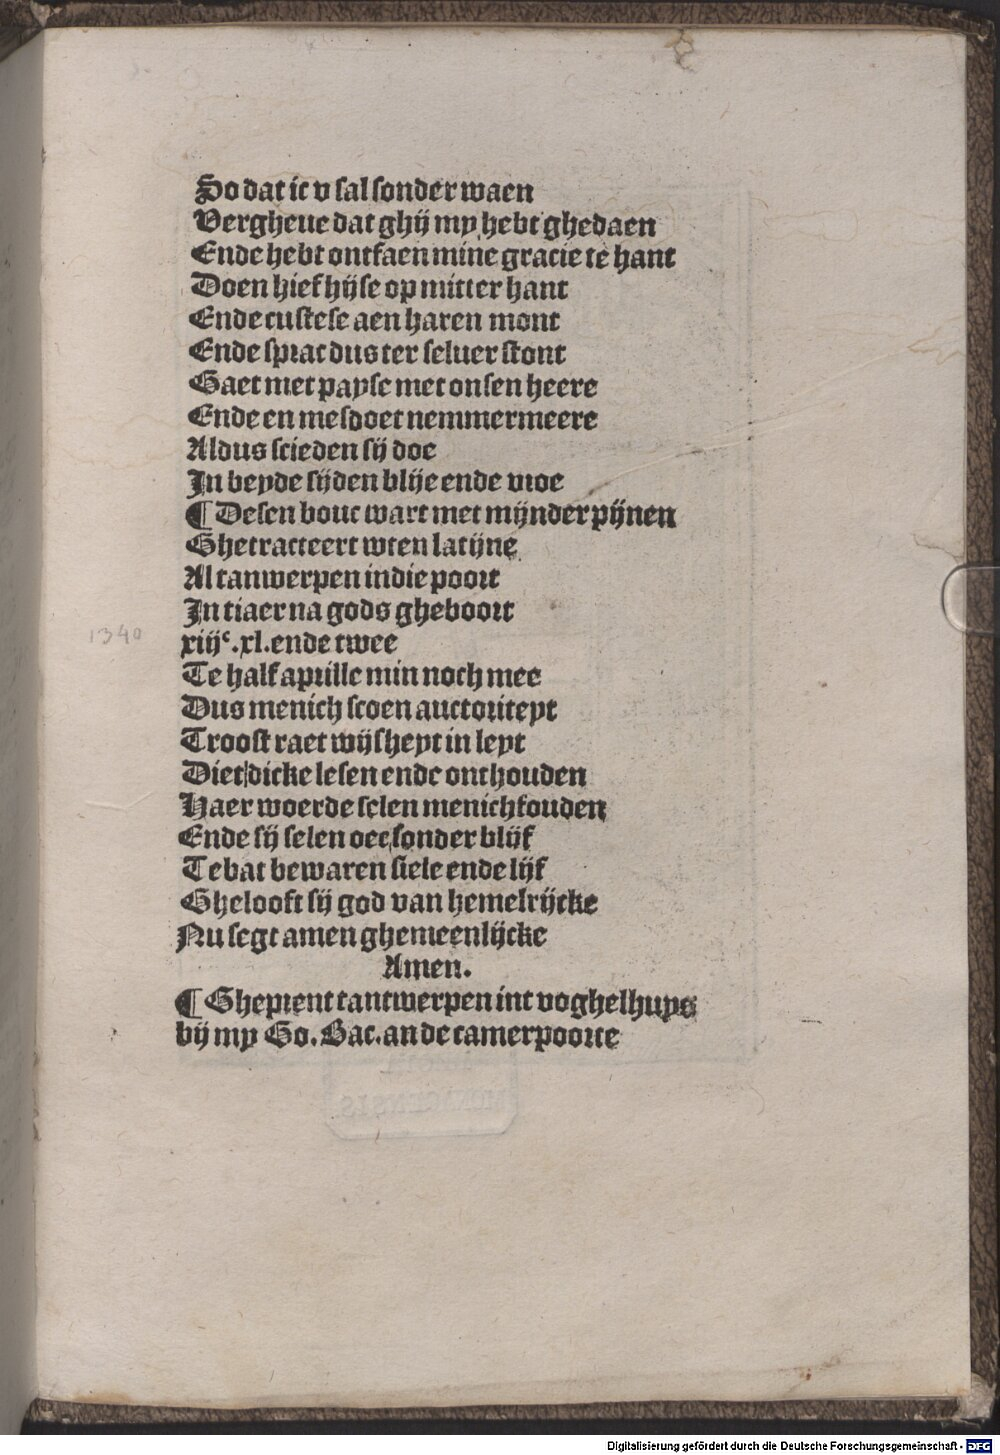 So dat ic v sal sonder waen
Vergheue dat ghij my hebt ghedaen
Ende hebt ontfaen mine gracie te hant
Doen hief hijse op mitter hant
Ende custese aen haren mont
Ende sprac dus ter seluer stont
Gaet met payse met onsen heere
Ende en mesdoet nemmermeere
Aldus scieden sij doe
In beyde sijden blije ende vroe
¶ Desen bouc wart met mijnder pijnen
Ghetracteert wten latijne
Al tanwerpen in die poort
In tiaer na gods gheboort
xiijᶜ.xl.ende twee
1340
Te half aprille min noch mee
Dus menich scoen auctoriteyt
Troost raet wijsheyt in leyt
Diet dicke lesen ende onthouden
Haer woerde selen menichfouden
Ende sij selen oec sonder blijf
Te bat bewaren siele ende lijf
Ghelooft sij god van hemelrijcke
Nu segt amen ghemeenlijcke
Amen.
¶ Gheprent tantwerpen int voghelhuys
bij my Go. Bac. an de camerpoorte
Digitalisierung gefördert durch die Deutsche Forschungsgemeinschaft - DFG